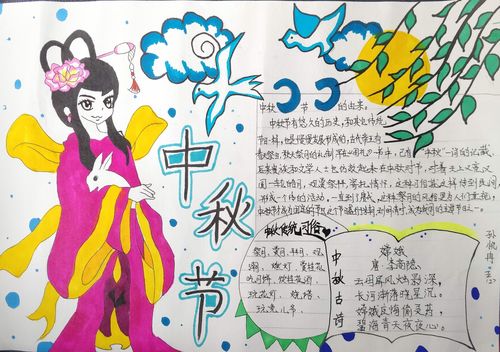 中秋节
中秋节的由来。
中秋节有悠久的历史,和其它传统
节日一样,也是慢慢发展形成的,古代帝王有
春天祭日,秋天祭月的礼制,早在《周礼》一书中,已有“中秋”一词的记载。
后来贵族和文学人士也仿效起来在中秋时节,对着天上又亮又
圆一轮皓月,观赏祭拜,寄托情怀,这种习俗就这样传到民间
形成一个传统的活动,一直到了唐代,这种祭月的风俗更为人们重视,
中秋节才成为固定的节日
中秋传统习俗
祭月、赏月、拜月、观
潮、燃灯、赏桂花
吃月饼、饮桂花酒
玩花灯、烧塔、
玩兔儿爷。
中秋古诗
嫦娥
唐·李商隐
云母屏风烛影深,
长河渐落晓星沉。
嫦娥应悔偷灵药,
碧海青天夜夜心。